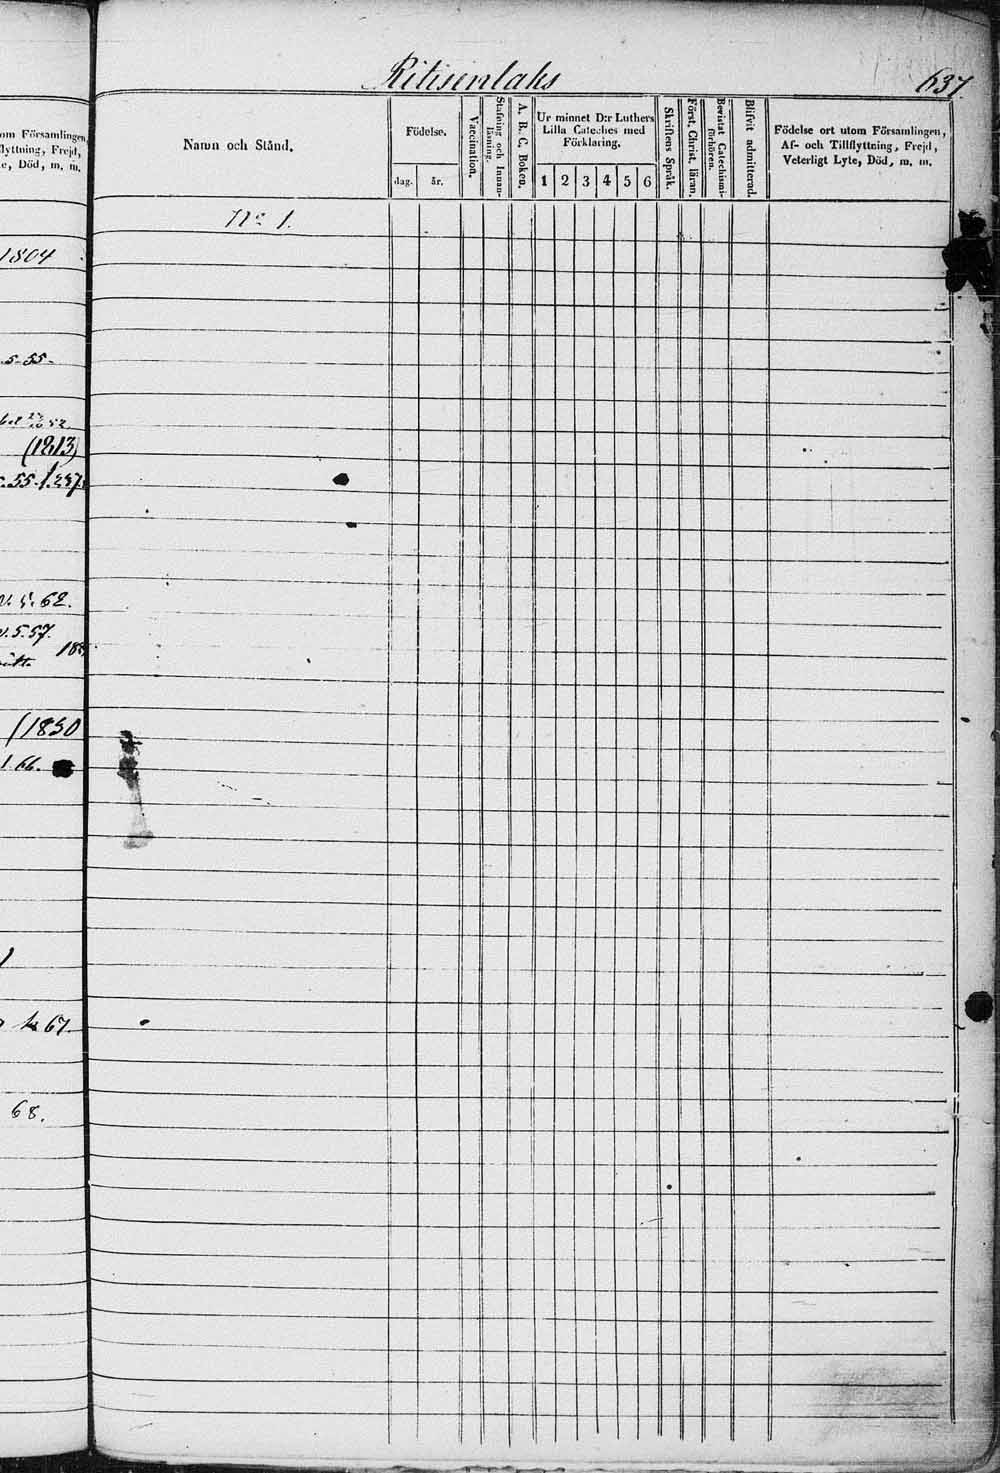 Ritisenlaks
637.
om Församlingen,
flyttning, Frejd,
e, Död, m. m.
1804
.5-55-
(1813)
.55.f.237.
v. 5. 62.
v. 5.57.
188
(1830
1.66.
67.
68.
Namn och Stånd.
Födelse.
dag.
år.
Vaccination.
Stafning och Innan-
läsning.
A. B. C. Boken.
Ur minnet D:r Luthers
Lilla Cateches med
Förklaring.
1 2 3 4 5 6
Skriftens Språk.
Först. Christ. läran.
Bevistat Catechismi-
förhören.
Blifvit admitterad.
Födelse ort utom Församlingen,
Af- och Tillflyttning, Frejd,
Veterligt Lyte, Död, m. m.
No 1.